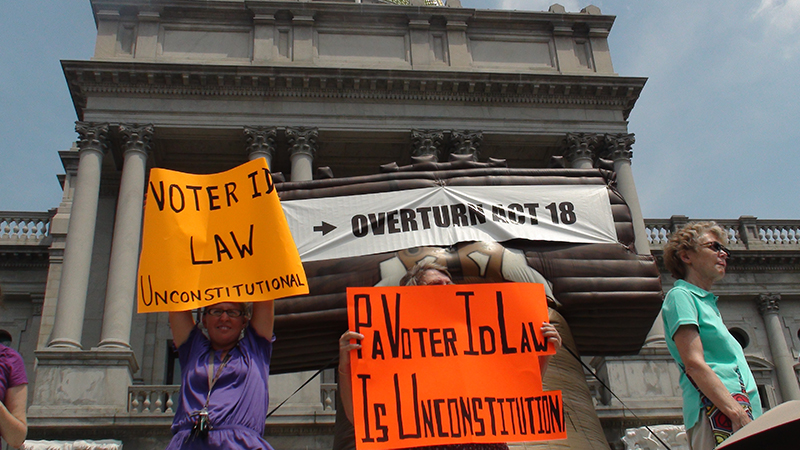 VOTER ID
LAW
UNCONSTITUTIONAL
→ OVERTURN ACT 18
PA VOTER ID LAW
IS UNCONSTITUTIONAL